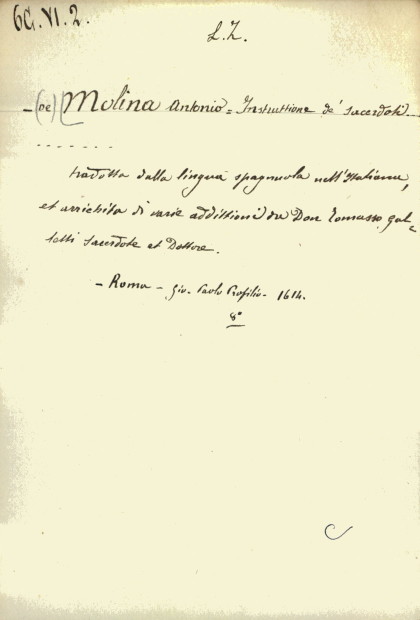 6G.VI.2.
L.Z.
- (De) Molina Antonio = Instruttione de' Sacerdoti -
- - - - - - -
tradotta dalla lingua spagnuola nell'Italiana,
et arrichita di varie additioni da Don Tomasso Gal=
letti Sacerdote et Dottore.
- Roma - Gio. Paolo Profilio - 1614.
8°